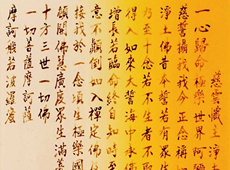 慈雲懺主淨
一心歸命極樂世界
慈誓攝我我今正念稱
淨土佛昔本誓若有眾
乃至十念若不生者不取
得入如來大誓海中承
增長若臨命終自知時
意不顛倒如入禪定佛
接我於一念頃生極樂
頓開佛慧廣度眾生滿菩
十方三世一切佛
一切菩薩摩訶薩
摩訶般若波羅蜜